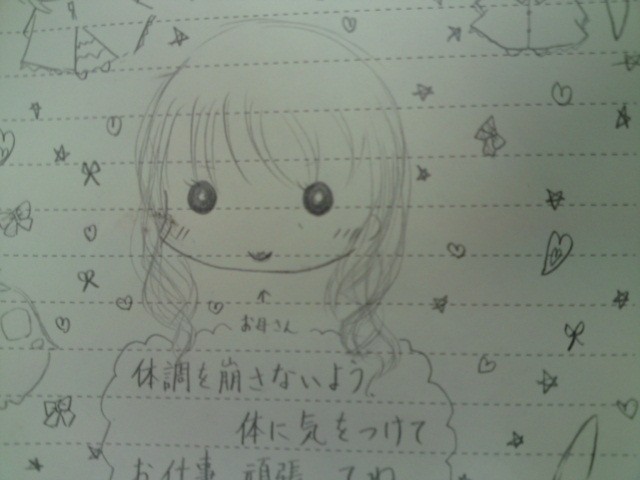 お母さん
体調を崩さないよう、
体に気をつけて
お仕事 頑張ってね